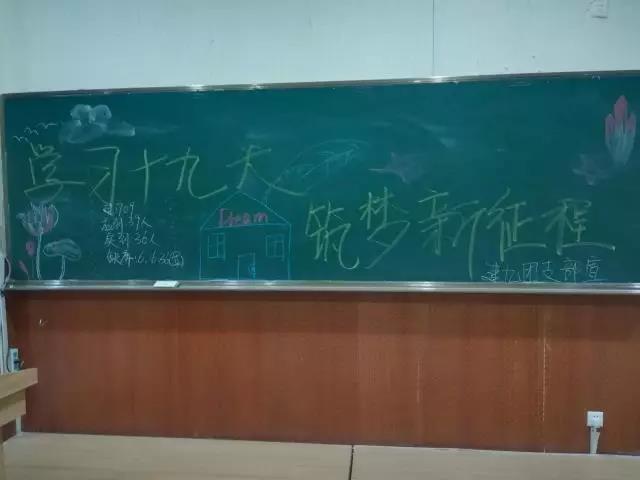 学习十九大
筑梦新征程
建1709
应到:39人
实到:36人
Dream
团支部宣